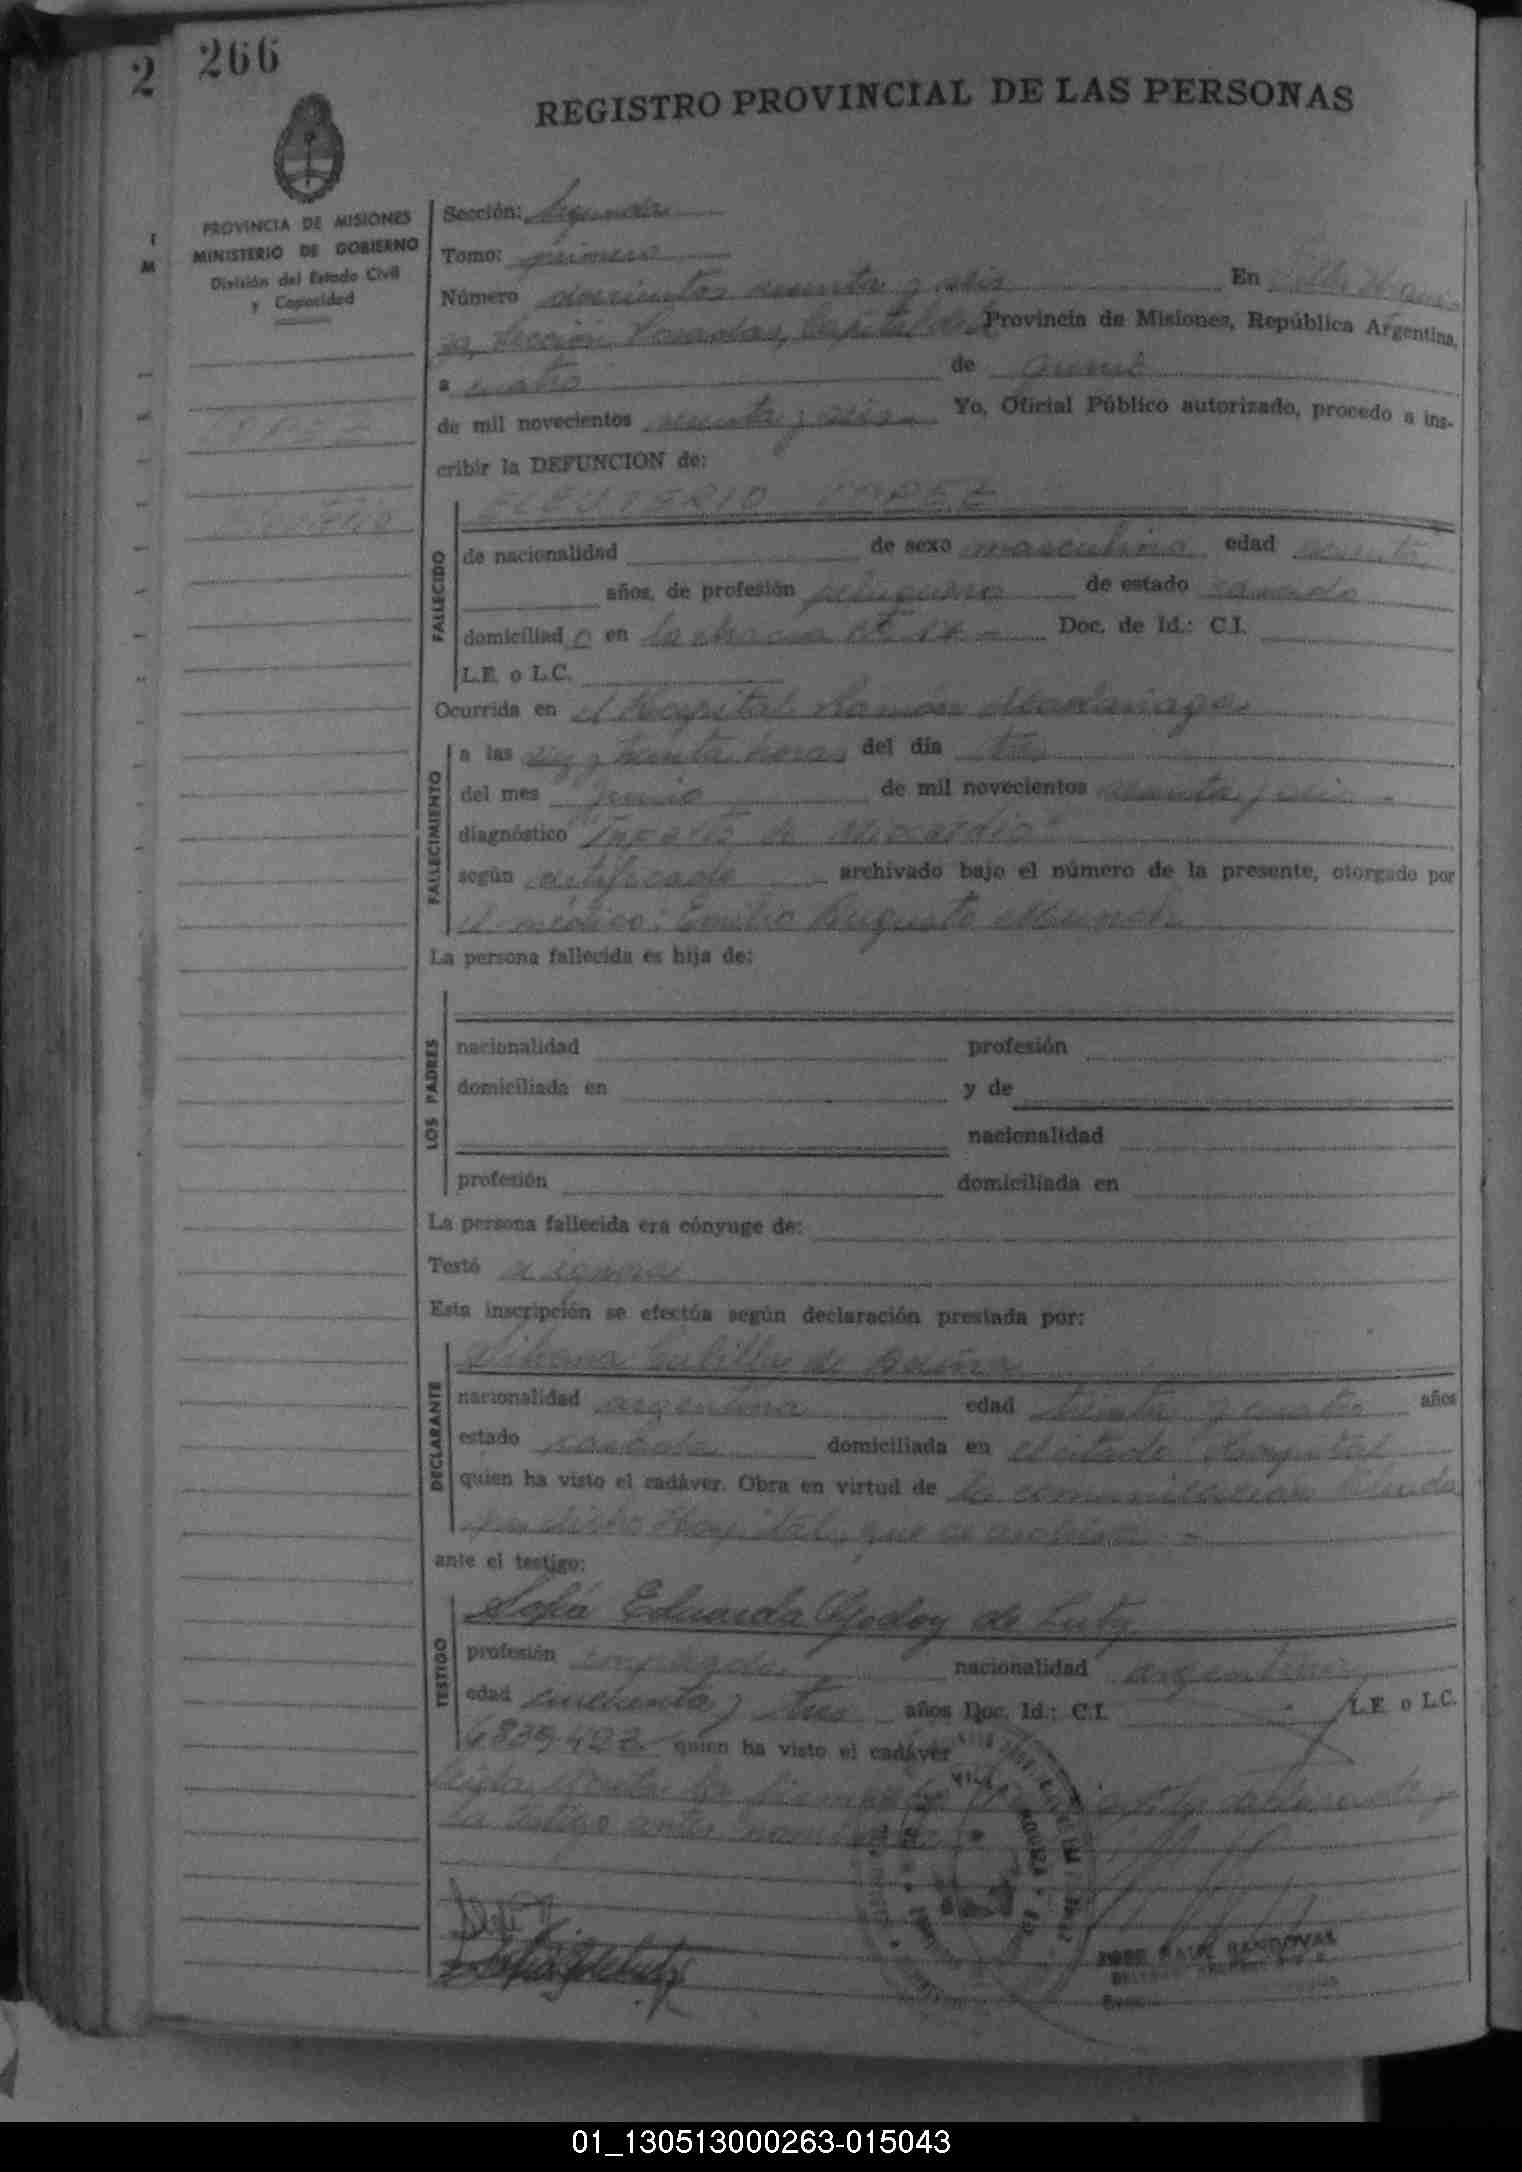 2 266
REGISTRO PROVINCIAL DE LAS PERSONAS
PROVINCIA DE MISIONES
MINISTERIO DE GOBIERNO
División del Estado Civil
y Capacidad
Sección: Segunda
Tomo: primero
Número doscientos sesenta y seis En Villa
Sección Posadas, Capital de la Provincia de Misiones, República Argentina,
a cuatro de junio
de mil novecientos sesenta y seis Yo, Oficial Público autorizado, procedo a ins-
cribir la DEFUNCION de:
LOPEZ
Eleuterio
FALLECIDO
ELEUTERIO LOPEZ
de nacionalidad de sexo masculino edad sesenta
años, de profesión peluquero de estado casado
domiciliado en la chacra Nº Doc. de Id.: C.I.
L.E. o L.C.
Ocurrida en el Hospital Ramón Madariaga
FALLECIMIENTO
a las diez y treinta horas del día tres
del mes junio de mil novecientos sesenta y seis
diagnóstico "Infarto de Miocardio"
según certificado archivado bajo el número de la presente, otorgado por
el médico: Emilio Augusto
La persona fallecida es hija de:
LOS PADRES
nacionalidad profesión
domiciliada en y de
nacionalidad
profesión domiciliada en
La persona fallecida era cónyuge de:
Testó se ignora
Esta inscripción se efectúa según declaración prestada por:
DECLARANTE
Cubilla de
nacionalidad argentina edad treinta y cuatro años
estado casada domiciliada en el citado Hospital
quien ha visto el cadáver. Obra en virtud de la comunicación
por dicho Hospital, que se archiva.
ante el testigo:
TESTIGO
Sofía Eduarda Godoy de Lutz
profesión empleada nacionalidad argentina
edad cincuenta y tres años Doc. Id.: C.I. L.E. o L.C.
quien ha visto el cadáver
Leída el acta la firman declarante y
la testigo antes nombrada
JOSE RAUL SANDOVAL
01_130513000263-015043